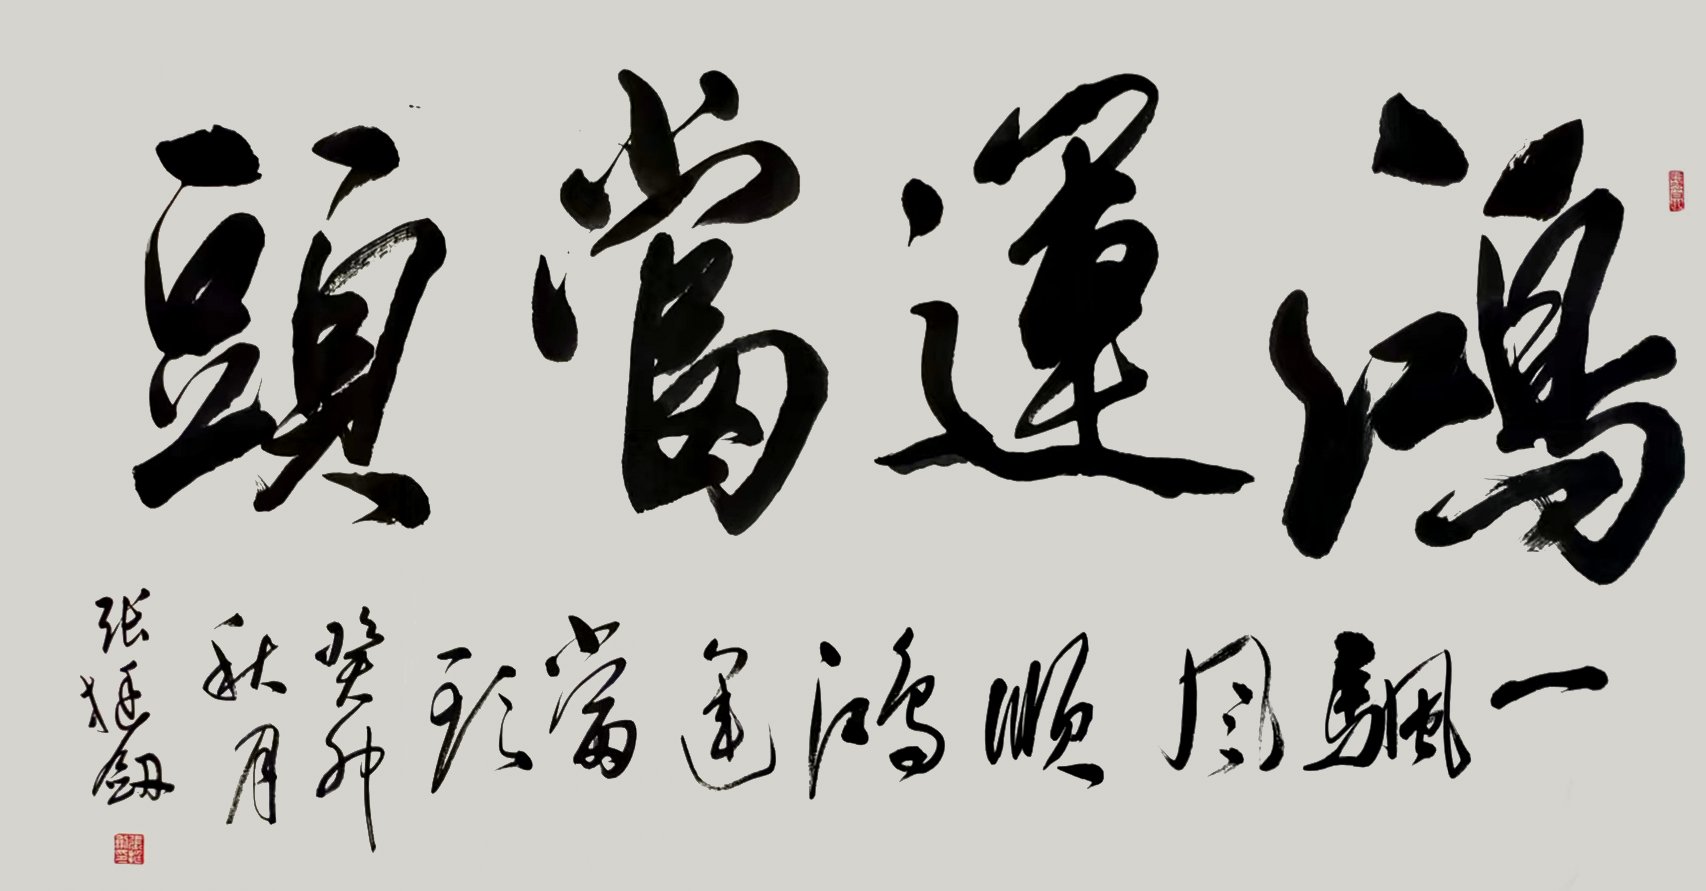 鴻運當頭
一颿風順鴻運當頭
癸卯
秋月
張挺劔